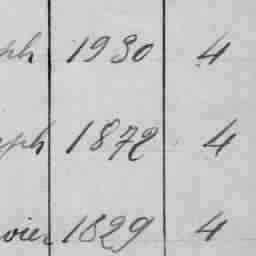 ph 1930 4
eph 1872 4
vier 1829 4